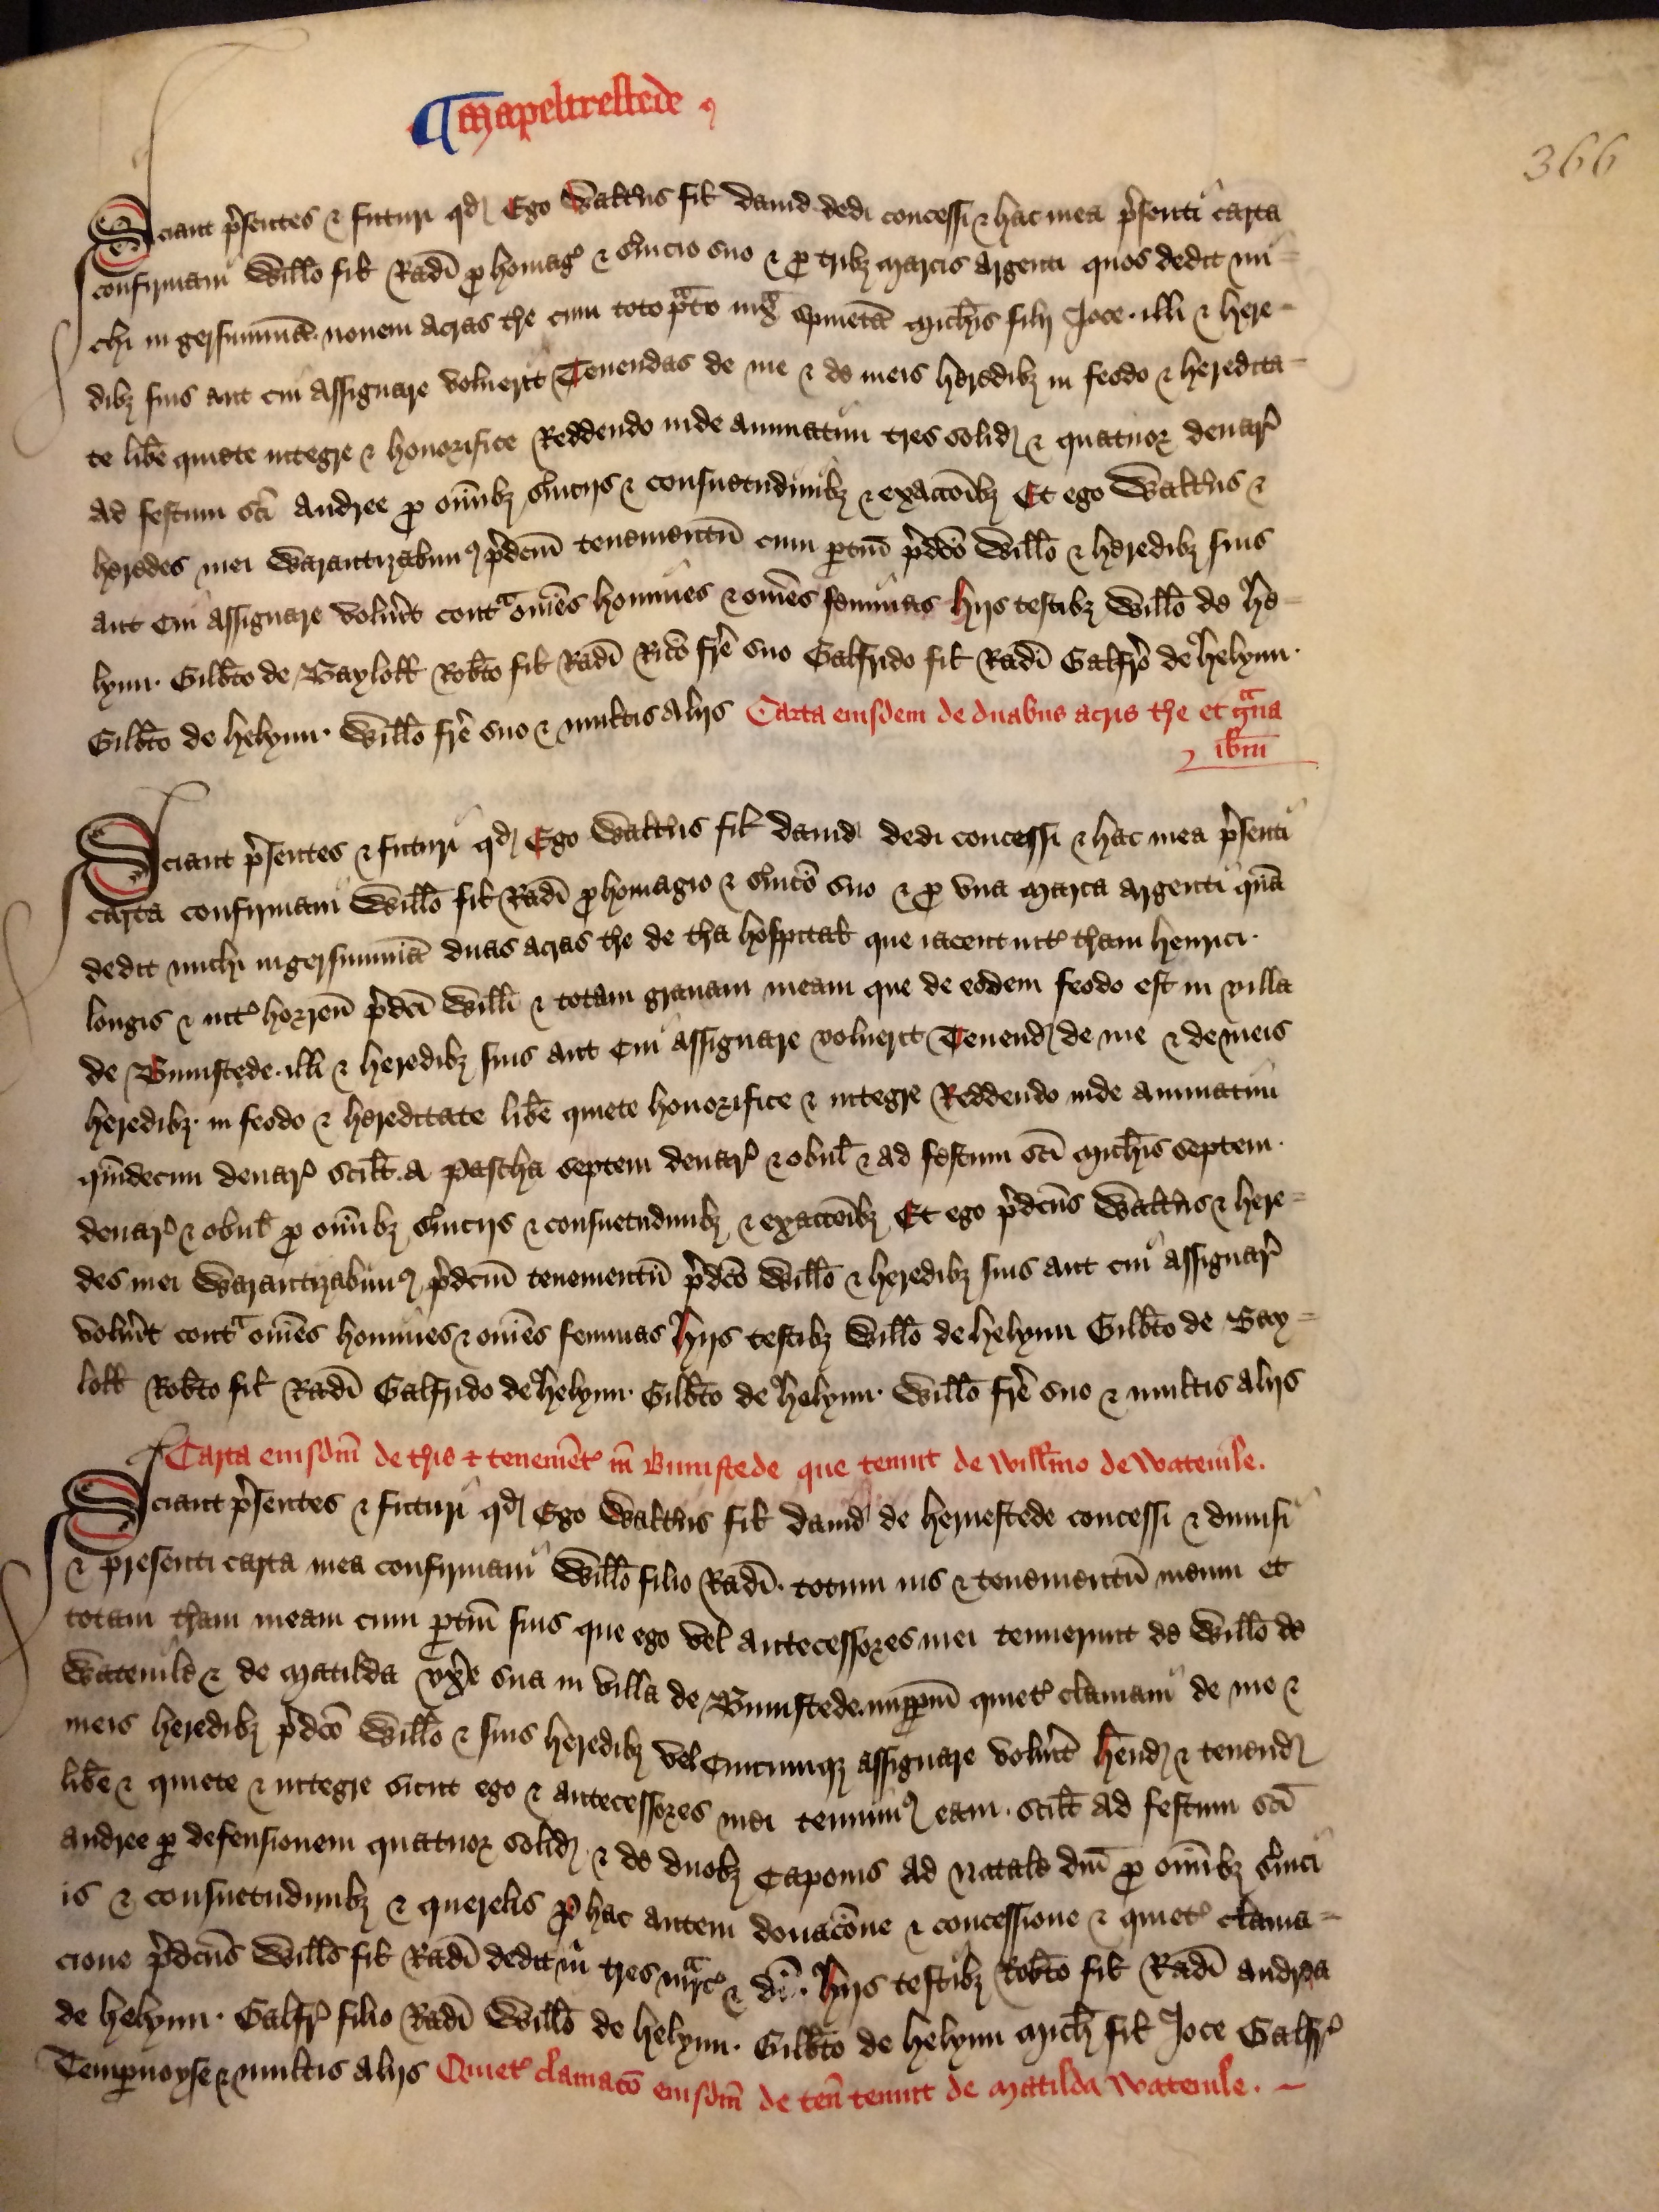 ¶ Mapeltrestede
366
Sciant p̄sentes & futuri qd Ego Walt̄us fil̄ dauid dedi concessi & hac mea p̄senti carta
confirmaui Willo fil̄ Rad̄i p homaḡ & s̄uicio suo & p tribȝ marcis argenti quos dedit mi=
chi in gersummā nouem acras t̄re cum toto p̄ato iux̄ spinetā Mich̄is filij Joce. illi & here=
dibȝ suis aut cui assignare voluerit Tenendas de me & de meis heredibȝ in feodo & heredita=
te lib̄e quiete integre & honorifice Reddendo inde annuatim tres solid & quatuor denar̄
ad festum sc̄i Andree p om̄ibȝ s̄uicijs & consuetudinibȝ & exacc̄oibȝ Et ego Walt̄us &
heredes mei Warantizabimꝰ p̄dc̄m tenementū cum p̄tin̄ p̄dc̄o Willo & heredibȝ suis
aut cui assignare voluīt contᵃ om̄es homines & om̄es feminas hijs testibȝ Willo de he=
lynn. Gilb̄to de Bayloll Rob̄to fil̄ Rad̄i Ric̄o fr̄e suo Galfrido fil̄ Rad̄i Galfr̄o de helynn.
Gilb̄to de helynn. Willo fr̄e suo & multis alijs Carta eiusdem de duabus acris t̄re et gᵃua
ib̄m
Sciant p̄sentes & futuri qd Ego Walt̄us fil̄ dauid dedi concessi & hac mea p̄senti
carta confirmaui Willo fil̄ Rad̄i p homagio & s̄uic̄o suo & p vna marca argenti quā
dedit michi in gersummā duas acras t̄re de t̄ra hospital̄ que iacent int̄ t̄ram henrici.
longis & int̄ horreū p̄dc̄i Willi & totam grauam meam que de eodem feodo est in villa
de Bumstede. illi & heredibȝ suis aut cui assignare voluerit Tenend de me & de meis
heredibȝ. in feodo & hereditate lib̄e quiete honorifice & integre Reddendo inde annuatim
quīdecim denar̄ scil̄t. a Pascha septem denar̄ & obul̄ & ad festum sc̄i Mich̄is septem.
denar̄ & obul̄ p om̄ibȝ s̄uicijs & consuetudinibȝ & exacc̄oibȝ Et ego p̄dc̄us Walt̄us & here=
des mei Warantizabimꝰ p̄dc̄m tenementū p̄dc̄o Willo & heredibȝ suis aut cui assignar̄
voluīt contᵃ om̄es homines & om̄es feminas hijs testibȝ Willo de helynn Gilb̄to de Bay=
loll Rob̄to fil̄ Rad̄i Galfrido de helynn. Gilb̄to de helynn. Willo fr̄e suo & multis alijs
Carta eiusdm̄ de t̄ris & tenemēt̄ in Bumstede que tenuit de Will̄mo de Wateuile.
Sciant p̄sentes & futuri qd Ego Walt̄us fil̄ dauid de hemestede concessi & dimisi
& presenti carta mea confirmaui Willo filio Rad̄i. totum ius & tenementū meum et
totam t̄ram meam cum p̄tin̄ suis que ego vel antecessores mei tenuerunt de Willo de
Wateuile & de Matilda vx̄e sua in villa de Bumstede. imppm̄ quiet̄ clamaui de me &
meis heredibȝ p̄dc̄o Willo & suis heredibȝ vel Cuicumqȝ assignare voluīt h̄end & tenend
lib̄e & quiete & integre sicut ego & antecessores mei tenuimꝰ eam. scil̄t ad festum sc̄i
andree p defensionem quatuor solid & de duobȝ Caponis ad Natale dn̄i p om̄ibȝ s̄uici
is & consuetudinibȝ & querelis P hac autem donac̄one & concessione & quiet̄ clama=
cione p̄dc̄us Willo fil̄ Rad̄i dedit m̄ tres mᵃrc̄ & di. hijs testibȝ Rob̄to fil̄ Rad̄i andrea
de helynn. Galfr̄ filio Rad̄i Willo de helynn. Gilb̄to de helynn Mich̄ fil̄ Joce Galfr̄
Tempernoyse & multis alijs Quiet̄ clamac̄o eiusdm̄ de ten̄ tenuit de Matilda Wateuile.